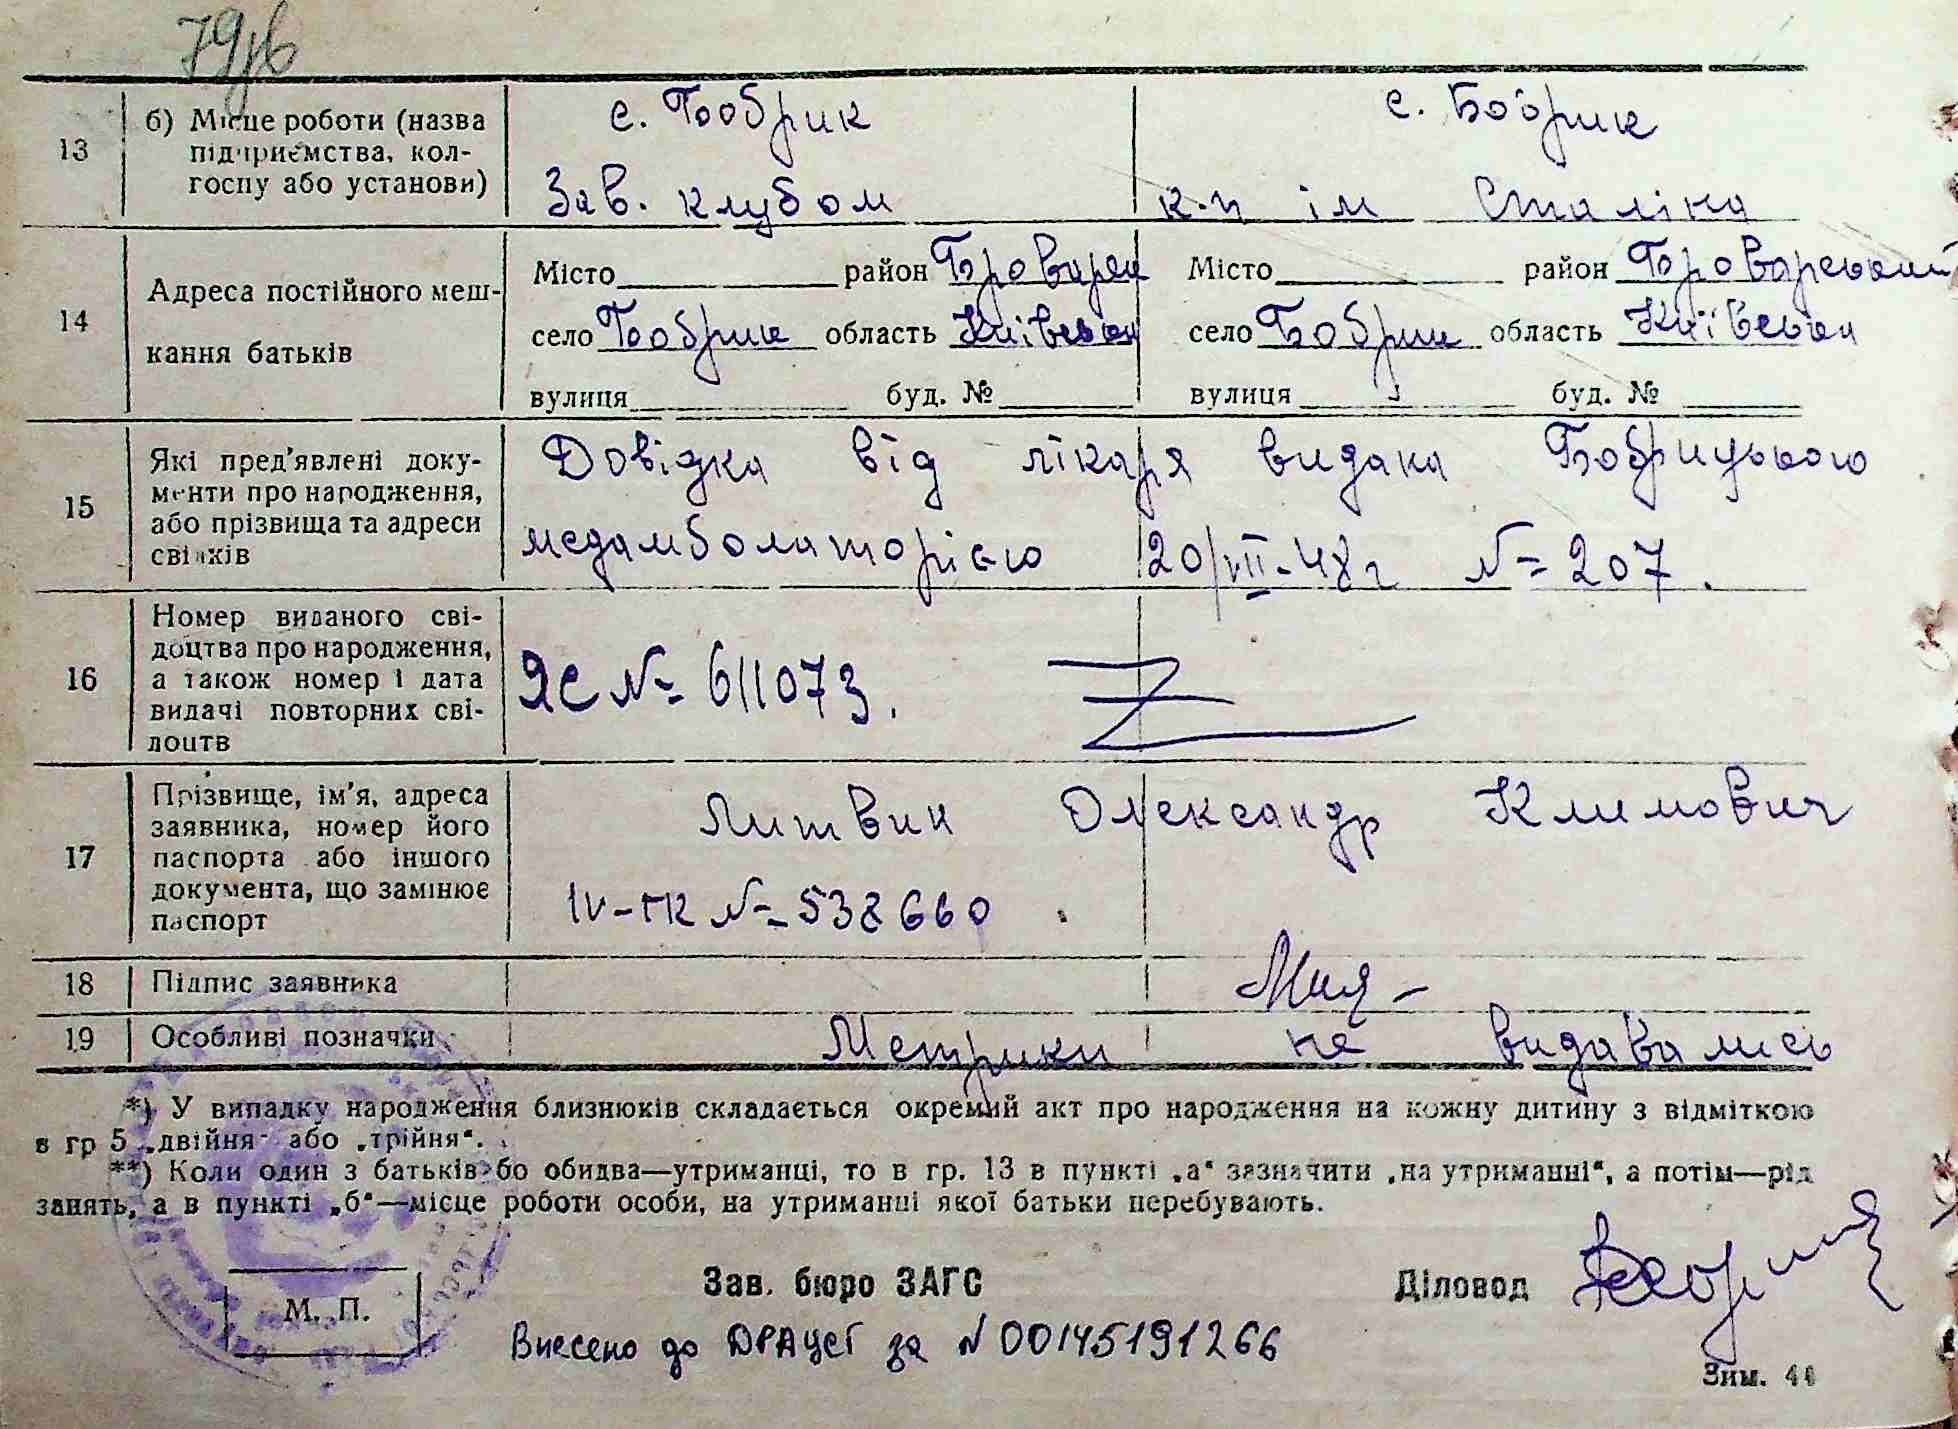 79
13 б) Місце роботи (назва підприємства, колгоспу або установи) с. Бобрик с. Бобрик
Зав. клубом к-п ім Сталіна
14 Адреса постійного мешкання батьків
Місто район Броварськ Місто район Броварський
село Бобрик область Київськ село Бобрик область Київськ
вулиця буд. № вулиця буд. №
15 Які пред'явлені документи про народження, або прізвища та адреси свідків
Довідка від лікаря видана Бобрицькою
медамболаторією 20/VII-48г № 207.
16 Номер виданого свідоцтва про народження, а також номер і дата видачі повторних свідоцтв
ЯС № 611073.
17 Прізвище, ім'я, адреса заявника, номер його паспорта або іншого документа, що замінює паспорт
Литвин Олександр Климович
IV-ГК № 538660.
18 Підпис заявника
19 Особливі позначки Метрики не видавались
*) У випадку народження близнюків складається окремий акт про народження на кожну дитину з відміткою
в гр 5 „двійня" або „трійня".
**) Коли один з батьків або обидва—утриманці, то в гр. 13 в пункті „а" зазначити „на утриманні", а потім—рід
занять, а в пункті „б"—місце роботи особи, на утриманні якої батьки перебувають.
Зав. бюро ЗАГС Діловод
М. П.
Внесено до ДРАЦСГ за N 00145191266
Зим. 44